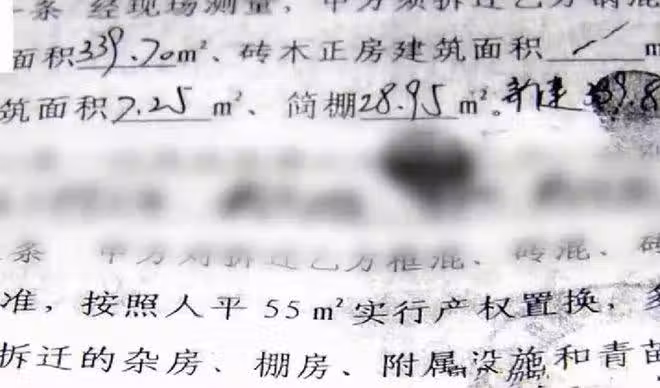 一条 经现场测量，甲方须拆迁乙方
面积339.70m²、砖木正房建筑面积 / m
筑面积7.25 m²、简棚28.95 m²。新建339.8
条 甲方对拆迁乙方框混、砖混、砖
准，按照人平55m²实行产权置换，多
拆迁的杂房、棚房、附属设施和青苗